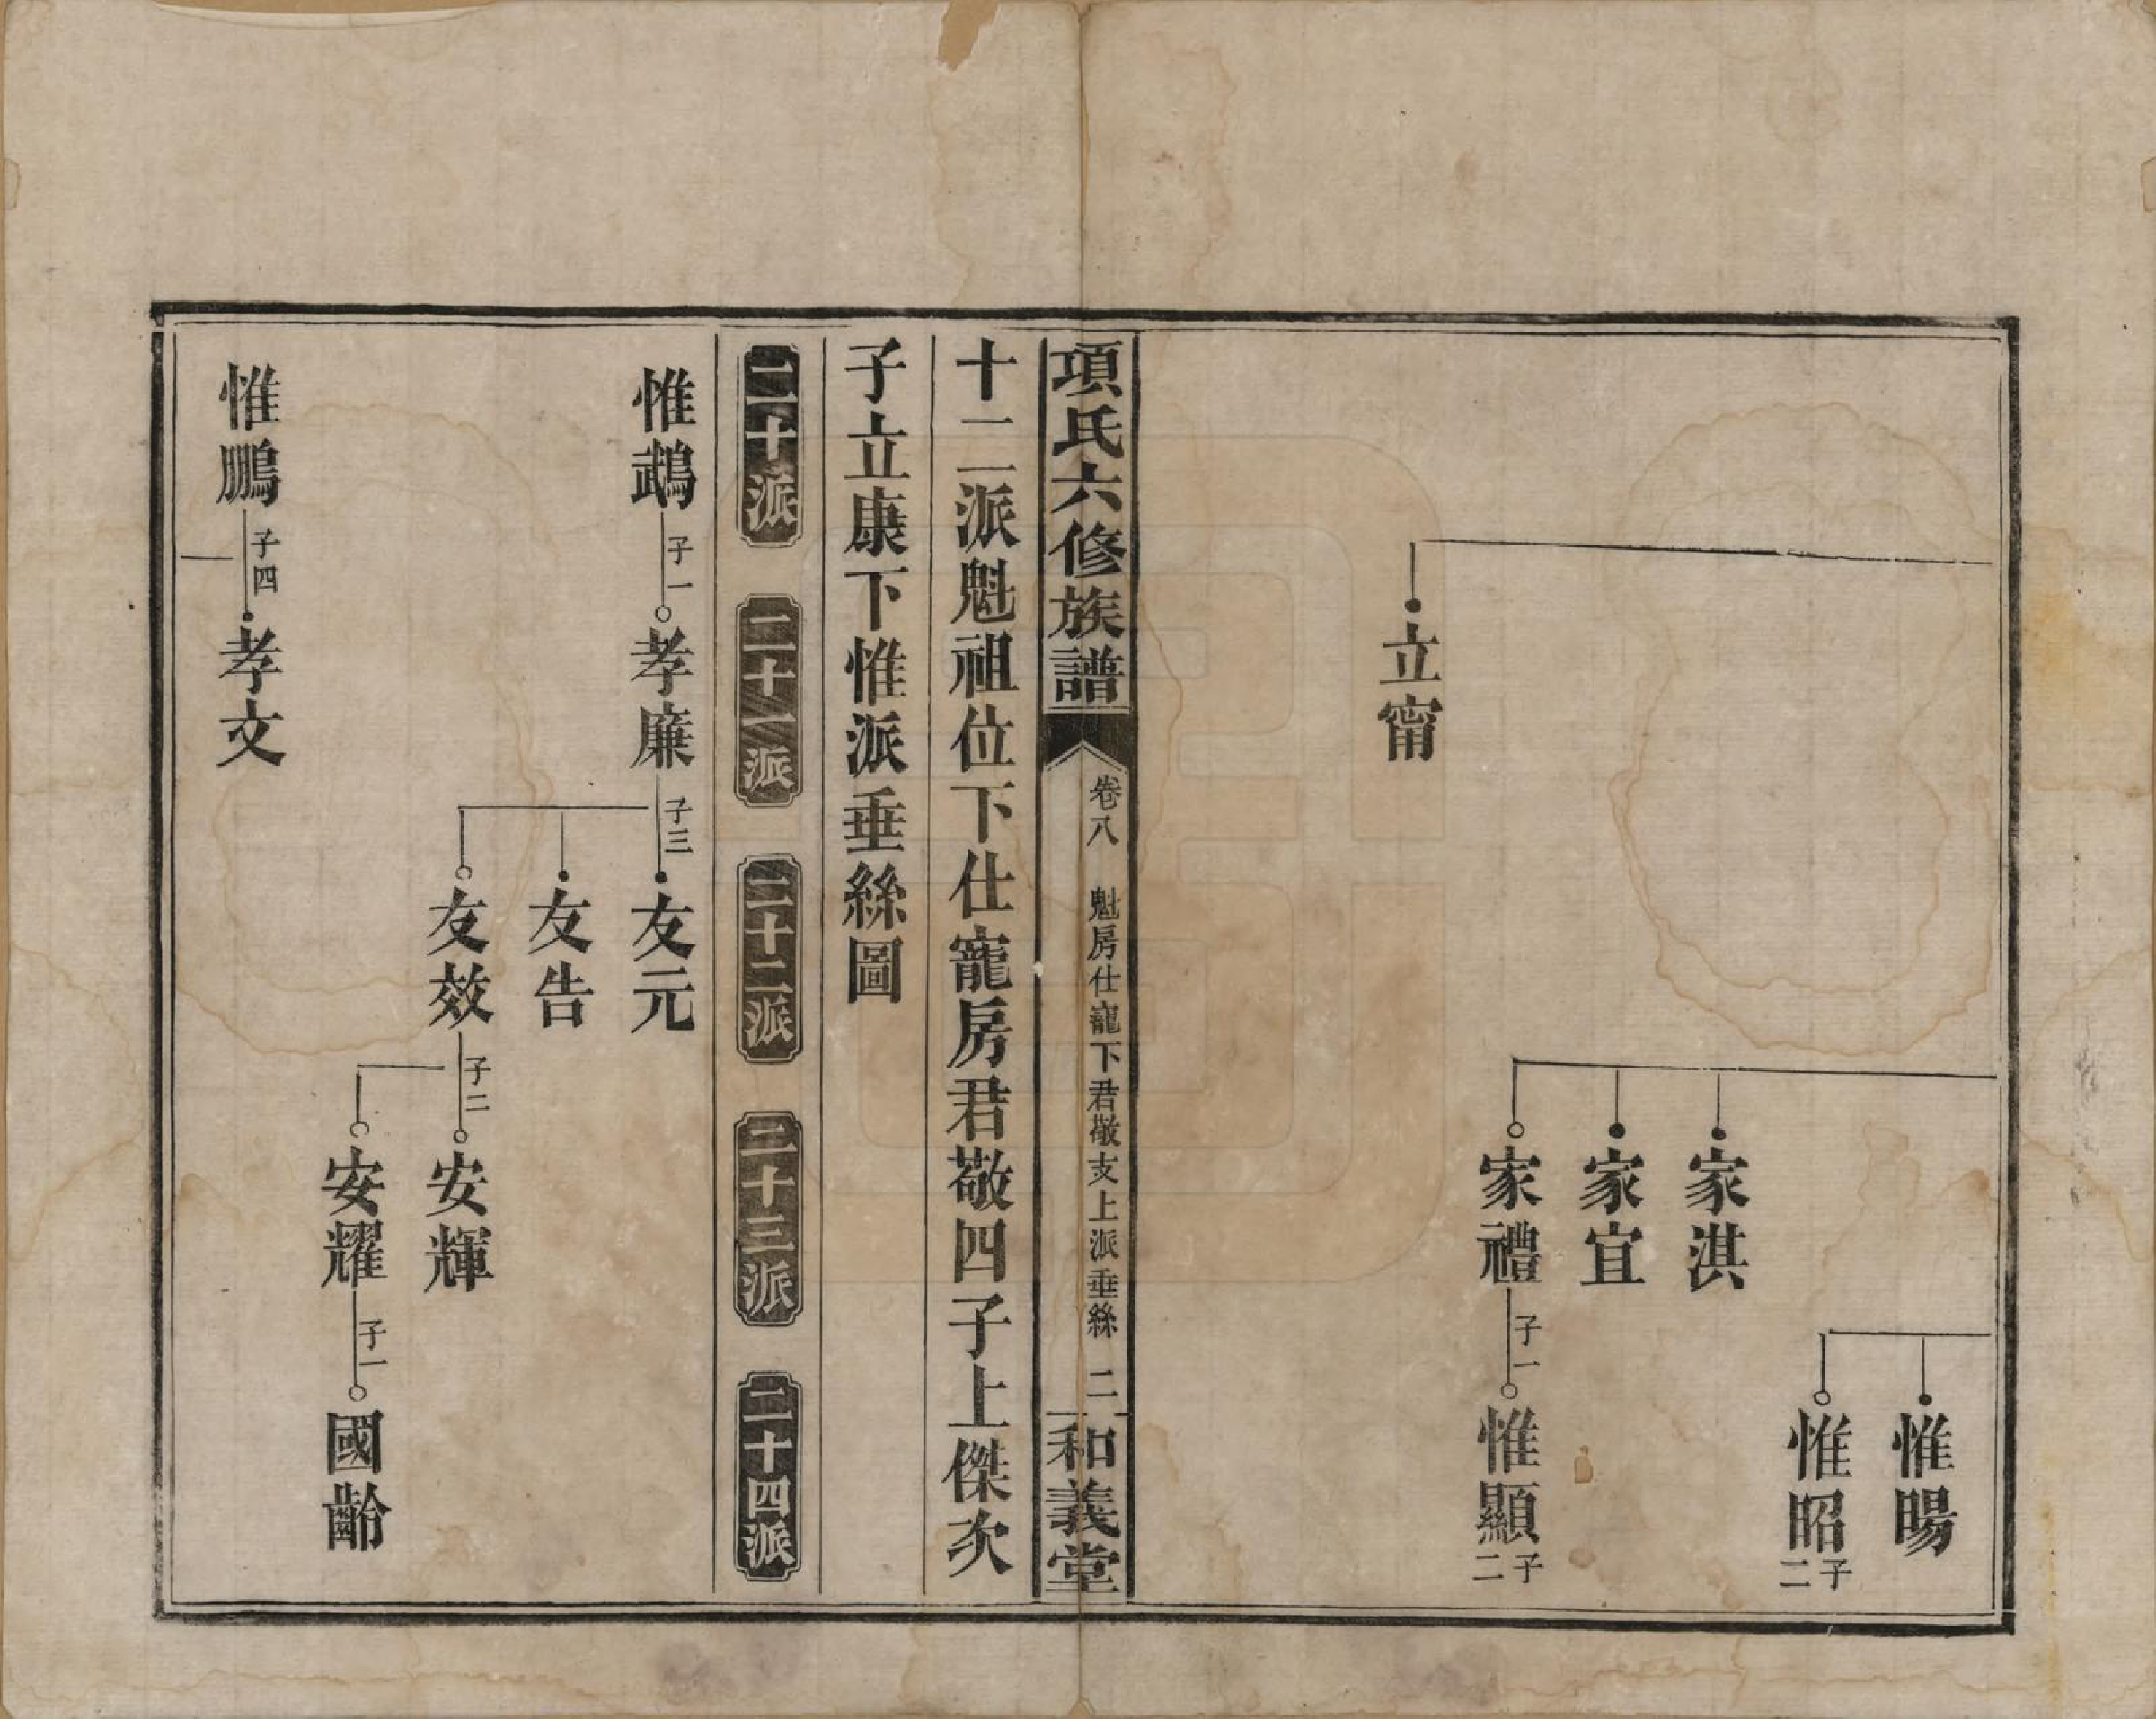 惟暘
惟昭 子二
家淇
家宜
家禮 子一 惟顯 子二
立甯
項氏六修族譜 卷八 魁房仕寵下君敬支上派垂絲 二 和義堂
十二派魁祖位下仕寵房君敬四子上傑次
子立康下惟派垂絲圖
二十派 二十一派 二十二派 二十三派 二十四派
惟鵡 子一 孝廉 子三 友元
友告
友效 子二 安輝
安耀 子一 國齡
惟鵬 子四 孝文